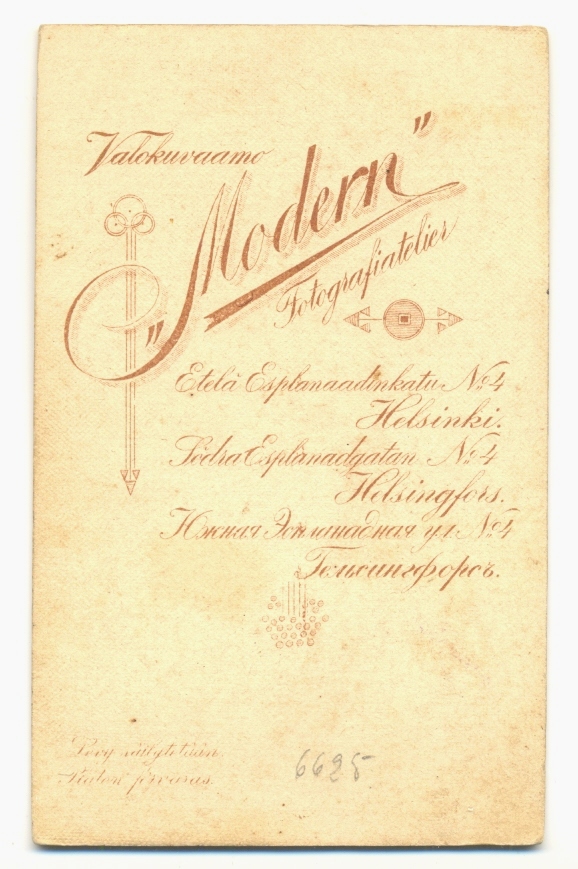 Valokuvaamo
„Modern”
Fotografiatelier
Etelä Esplanaadinkatu № 4
Helsinki.
Södra Esplanadgatan № 4
Helsingfors.
Южная Эспланадная ул. № 4
Гельсингфорсъ.
Levy säilytetään.
Platen förvaras.
6625